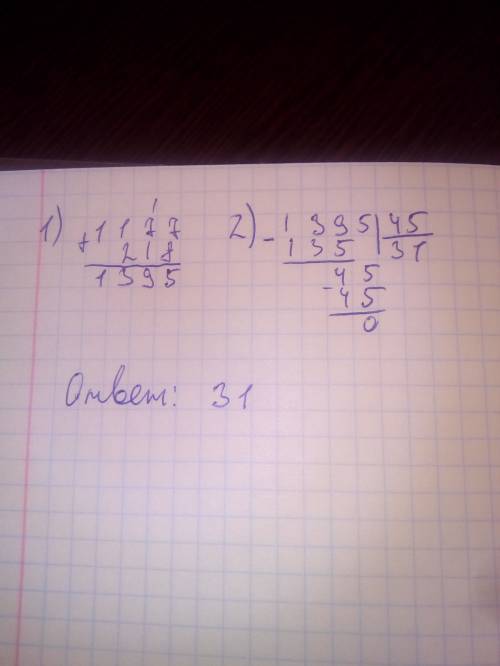 1) + 1177
218
1395
2) - 1395 | 45
135 | 31
45
- 45
0
Ответ: 31